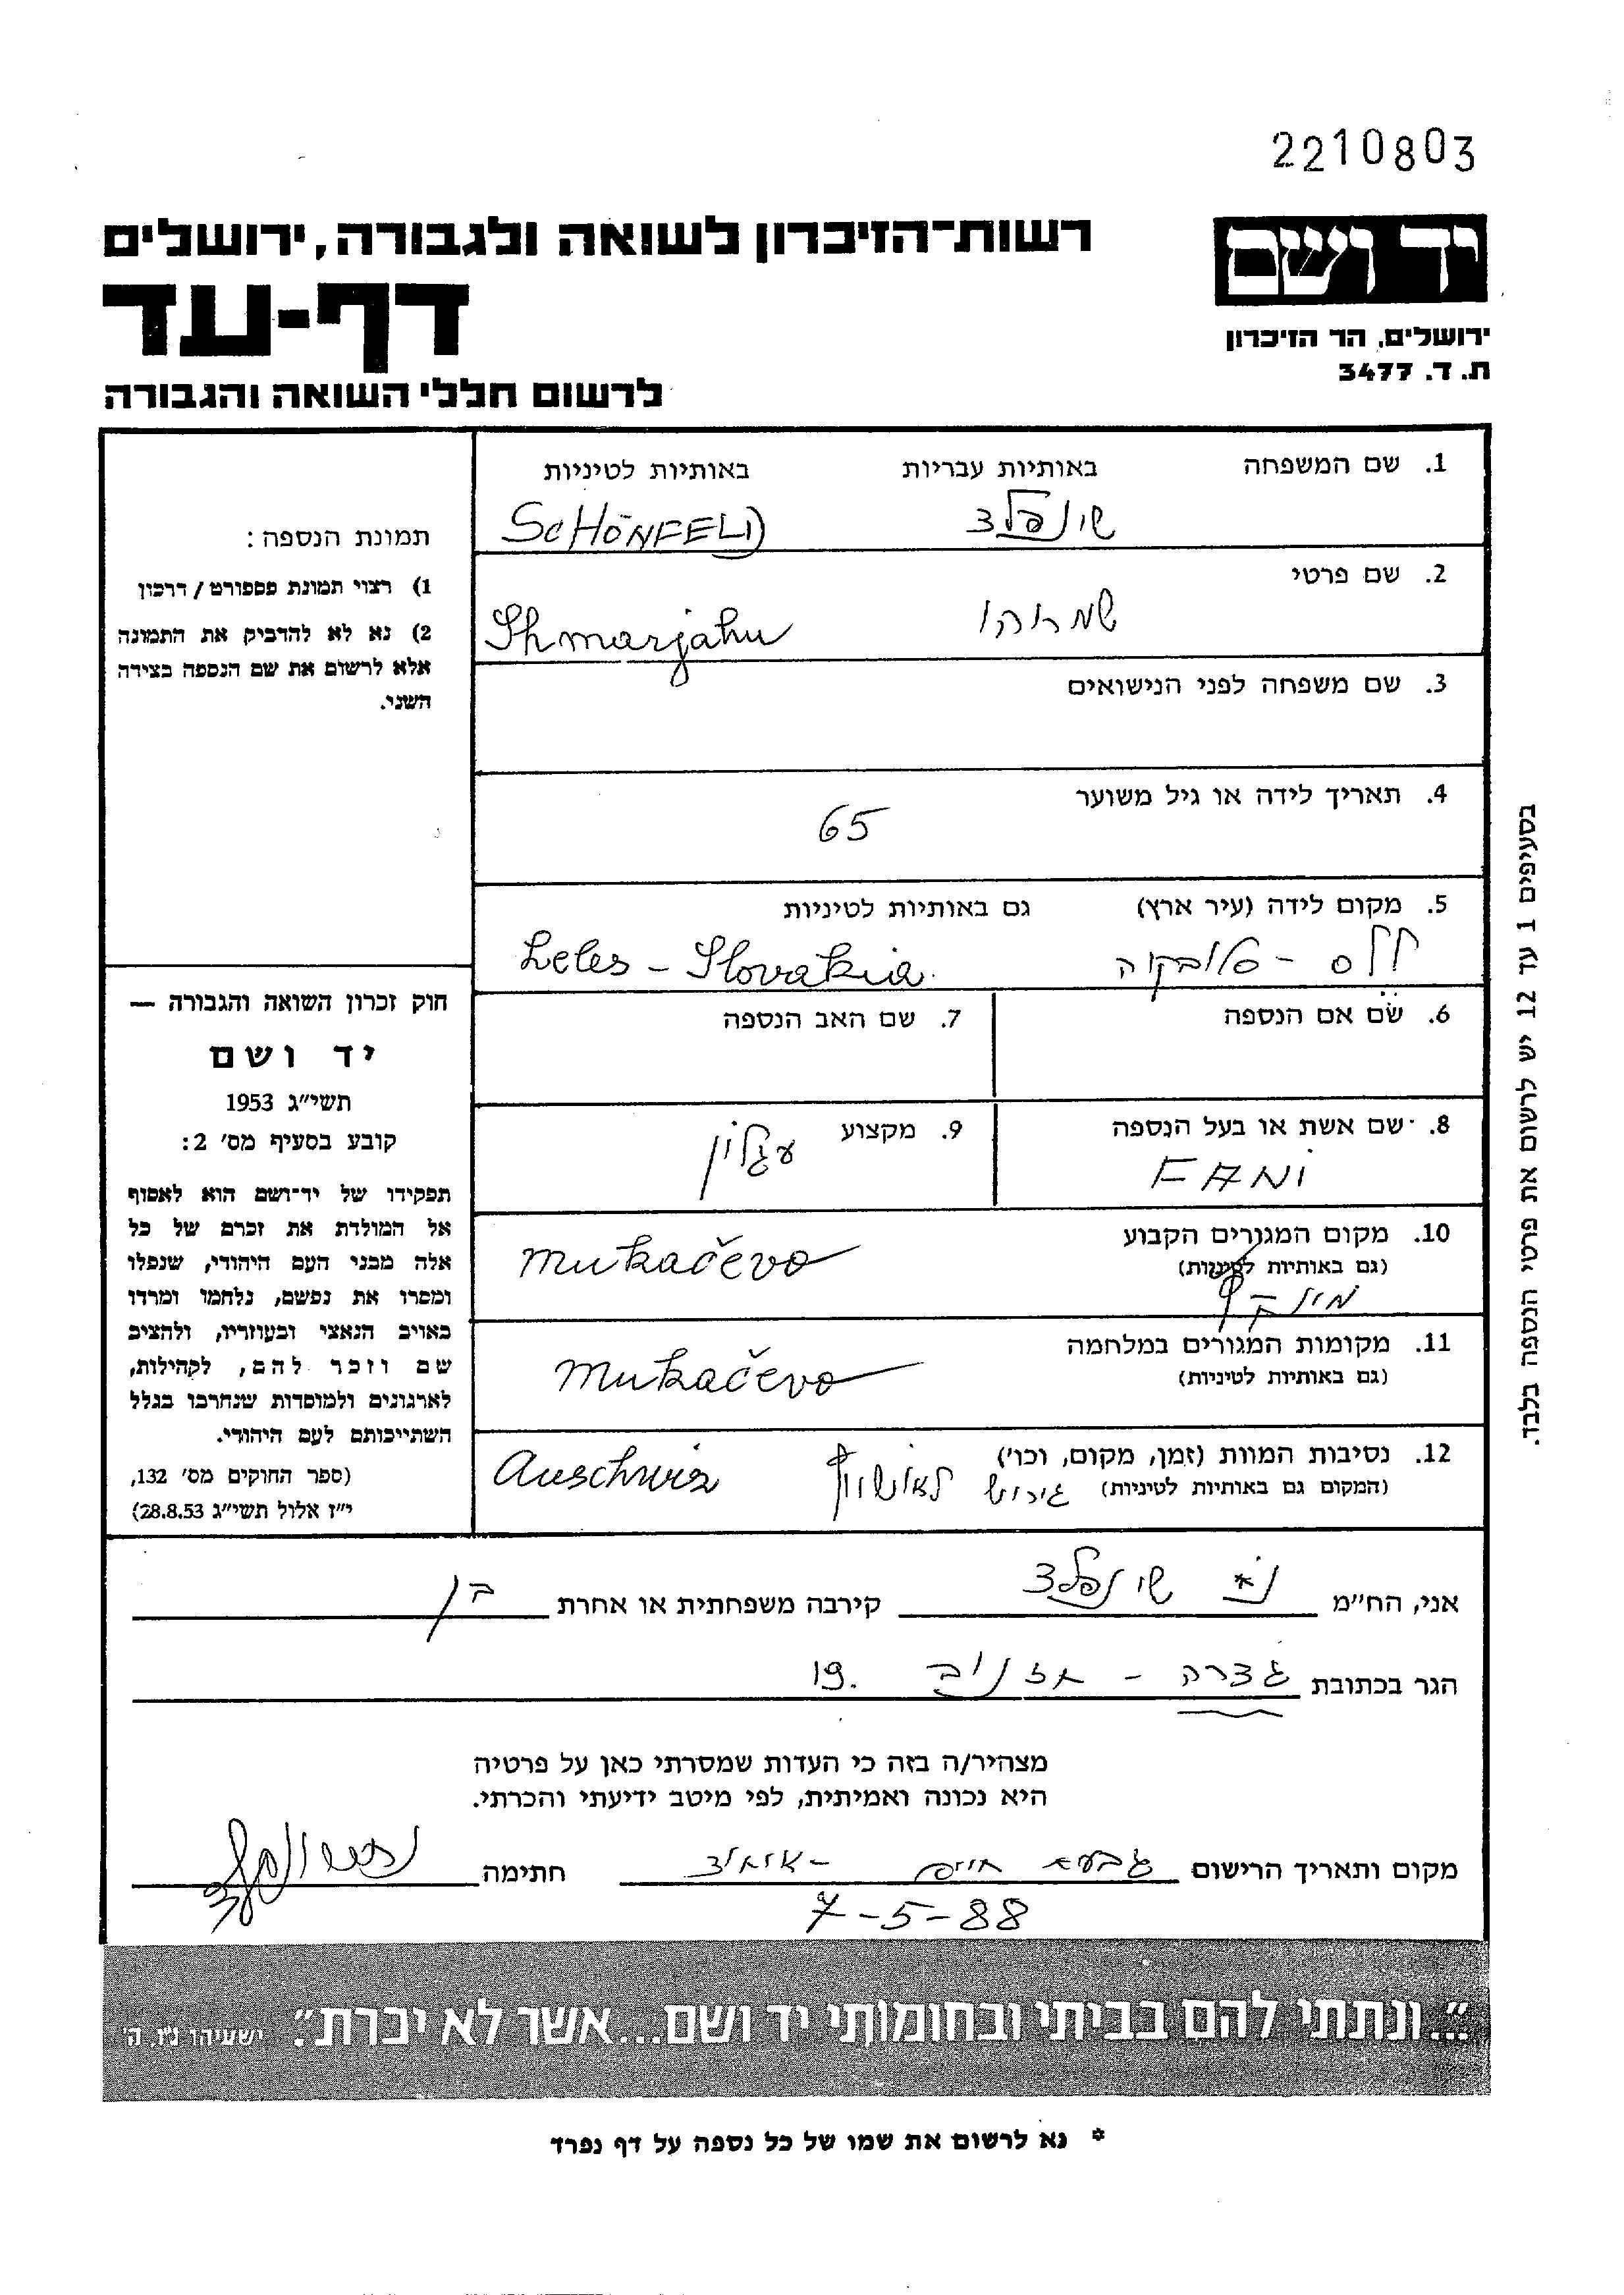 2210803
יד ושם
ירושלים, הר הזיכרון
ת. ד. 3477
רשות־הזיכרון לשואה ולגבורה, ירושלים
דף-עד
לרשום חללי השואה והגבורה
תמונת הנספה:
1) רצוי תמונת פספורט / דרכון
2) נא לא להדביק את התמונה
אלא לרשום את שם הנספה בצידה
השני.
חוק זכרון השואה והגבורה —
יד ושם
תשי״ג 1953
קובע בסעיף מס׳ 2:
תפקידו של יד־ושם הוא לאסוף
אל המולדת את זכרם של כל
אלה מבני העם היהודי, שנפלו
ומסרו את נפשם, נלחמו ומרדו
באויב הנאצי ובעוזריו, ולהציב
שם וזכר להם, לקהילות,
לארגונים ולמוסדות שנחרבו בגלל
השתייכותם לעם היהודי.
(ספר החוקים מס׳ 132,
י״ז אלול תשי״ג 28.8.53)
1. שם המשפחה באותיות עבריות באותיות לטיניות
שינפלד SCHÖNFELD
2. שם פרטי
שמריהו Shmarjahu
3. שם משפחה לפני הנישואים
4. תאריך לידה או גיל משוער
65
5. מקום לידה (עיר ארץ) גם באותיות לטיניות
ללס - סלובקיה Leles - Slovakia
6. שם אם הנספה 7. שם האב הנספה
8. שם אשת או בעל הנספה 9. מקצוע
FANI עגלון
10. מקום המגורים הקבוע
(גם באותיות לטיניות) Mukačevo
מונקץ'
11. מקומות המגורים במלחמה
(גם באותיות לטיניות) Mukačevo
12. נסיבות המוות (זמן, מקום, וכו')
(המקום גם באותיות לטיניות) גירוש לאושוויץ Auschwiz
בסעיפים 1 עד 12 יש לרשום את פרטי הנספה בלבד.
אני, הח״מ שינפלד קירבה משפחתית או אחרת בן
הגר בכתובת גדרה - 19.
מצהיר/ה בזה כי העדות שמסרתי כאן על פרטיה
היא נכונה ואמיתית, לפי מיטב ידיעתי והכרתי.
מקום ותאריך הרישום גבעת חיים - איחוד חתימה
7-5-88
״...ונתתי להם בביתי ובחומותי יד ושם...אשר לא יכרת״. ישעיהו נ״ו, ה׳
* נא לרשום את שמו של כל נספה על דף נפרד